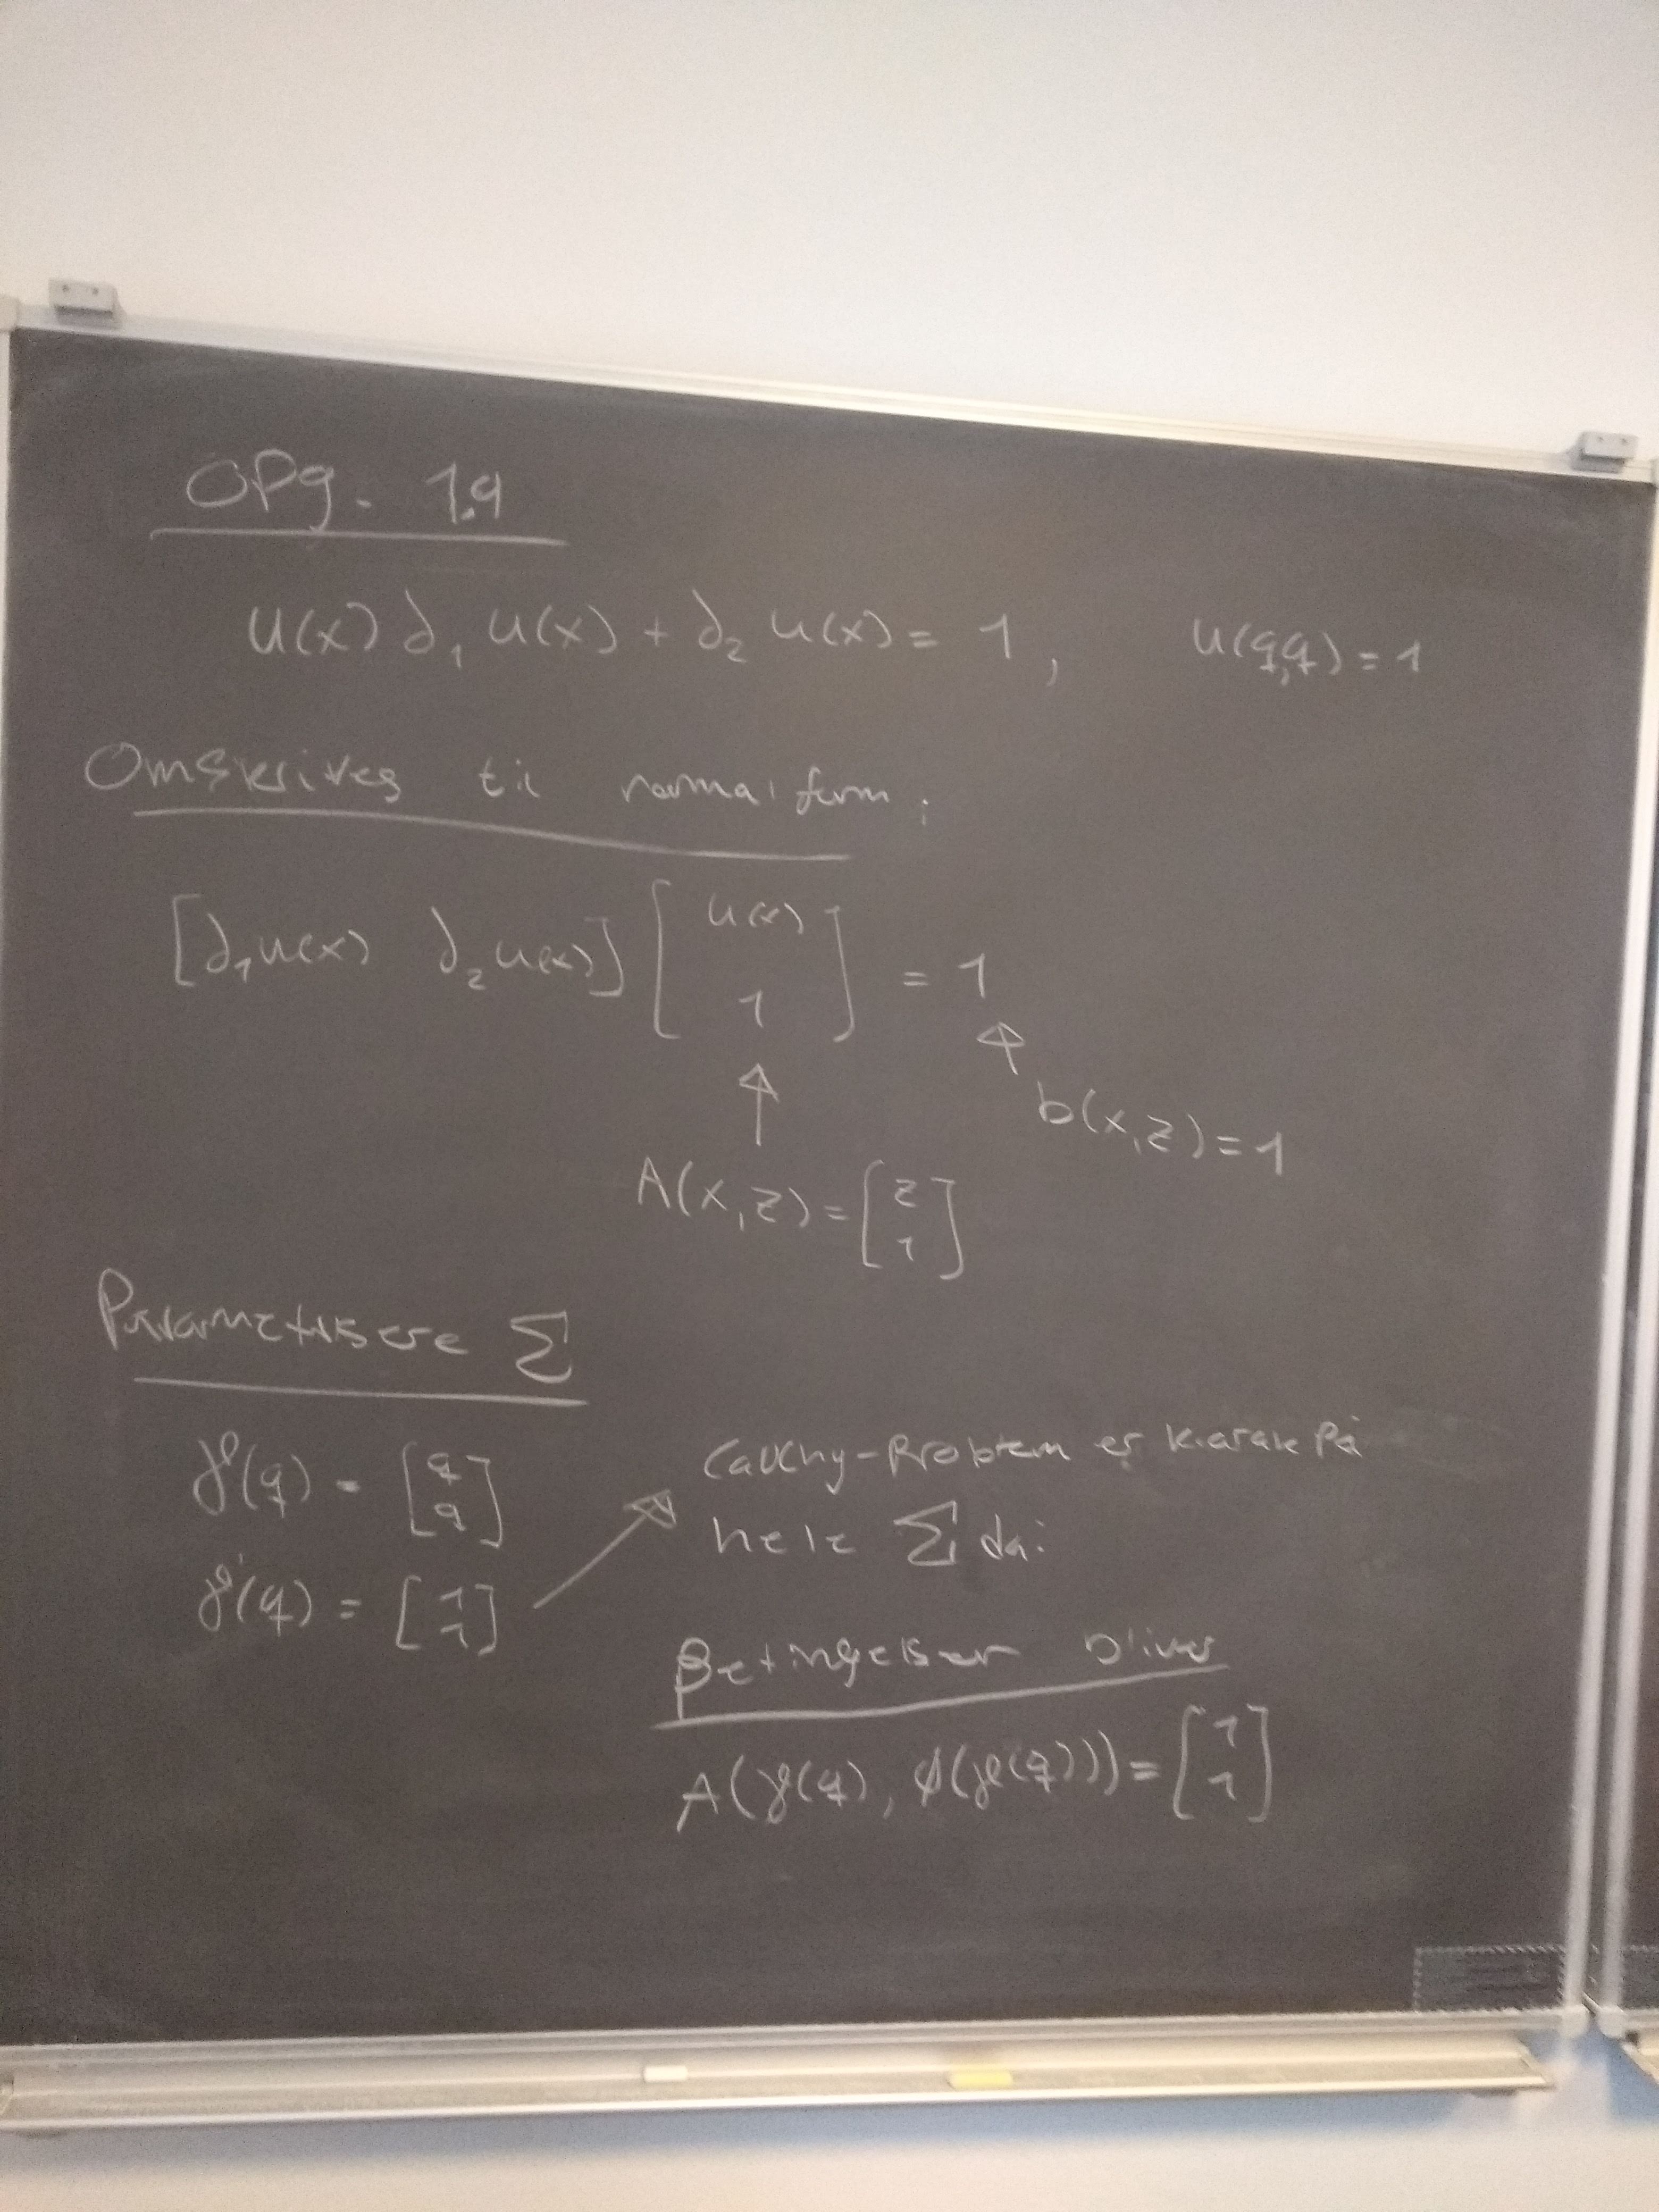 OPg. 1.9
u(x) ∂₁ u(x) + ∂₂ u(x) = 1, u(q,q) = 1
Omskrives til normalform:
[∂₁u(x) ∂₂u(x)] [u(x) 1] = 1
b(x,z) = 1
A(x,z) = [z 1]
Parametrisere Σ
γ(q) = [q q]
Cauchy-Problem er karak på
hele Σ da:
γ'(q) = [1 1]
Betingelser bliver
A(γ(q), ϕ(γ(q))) = [1 1]